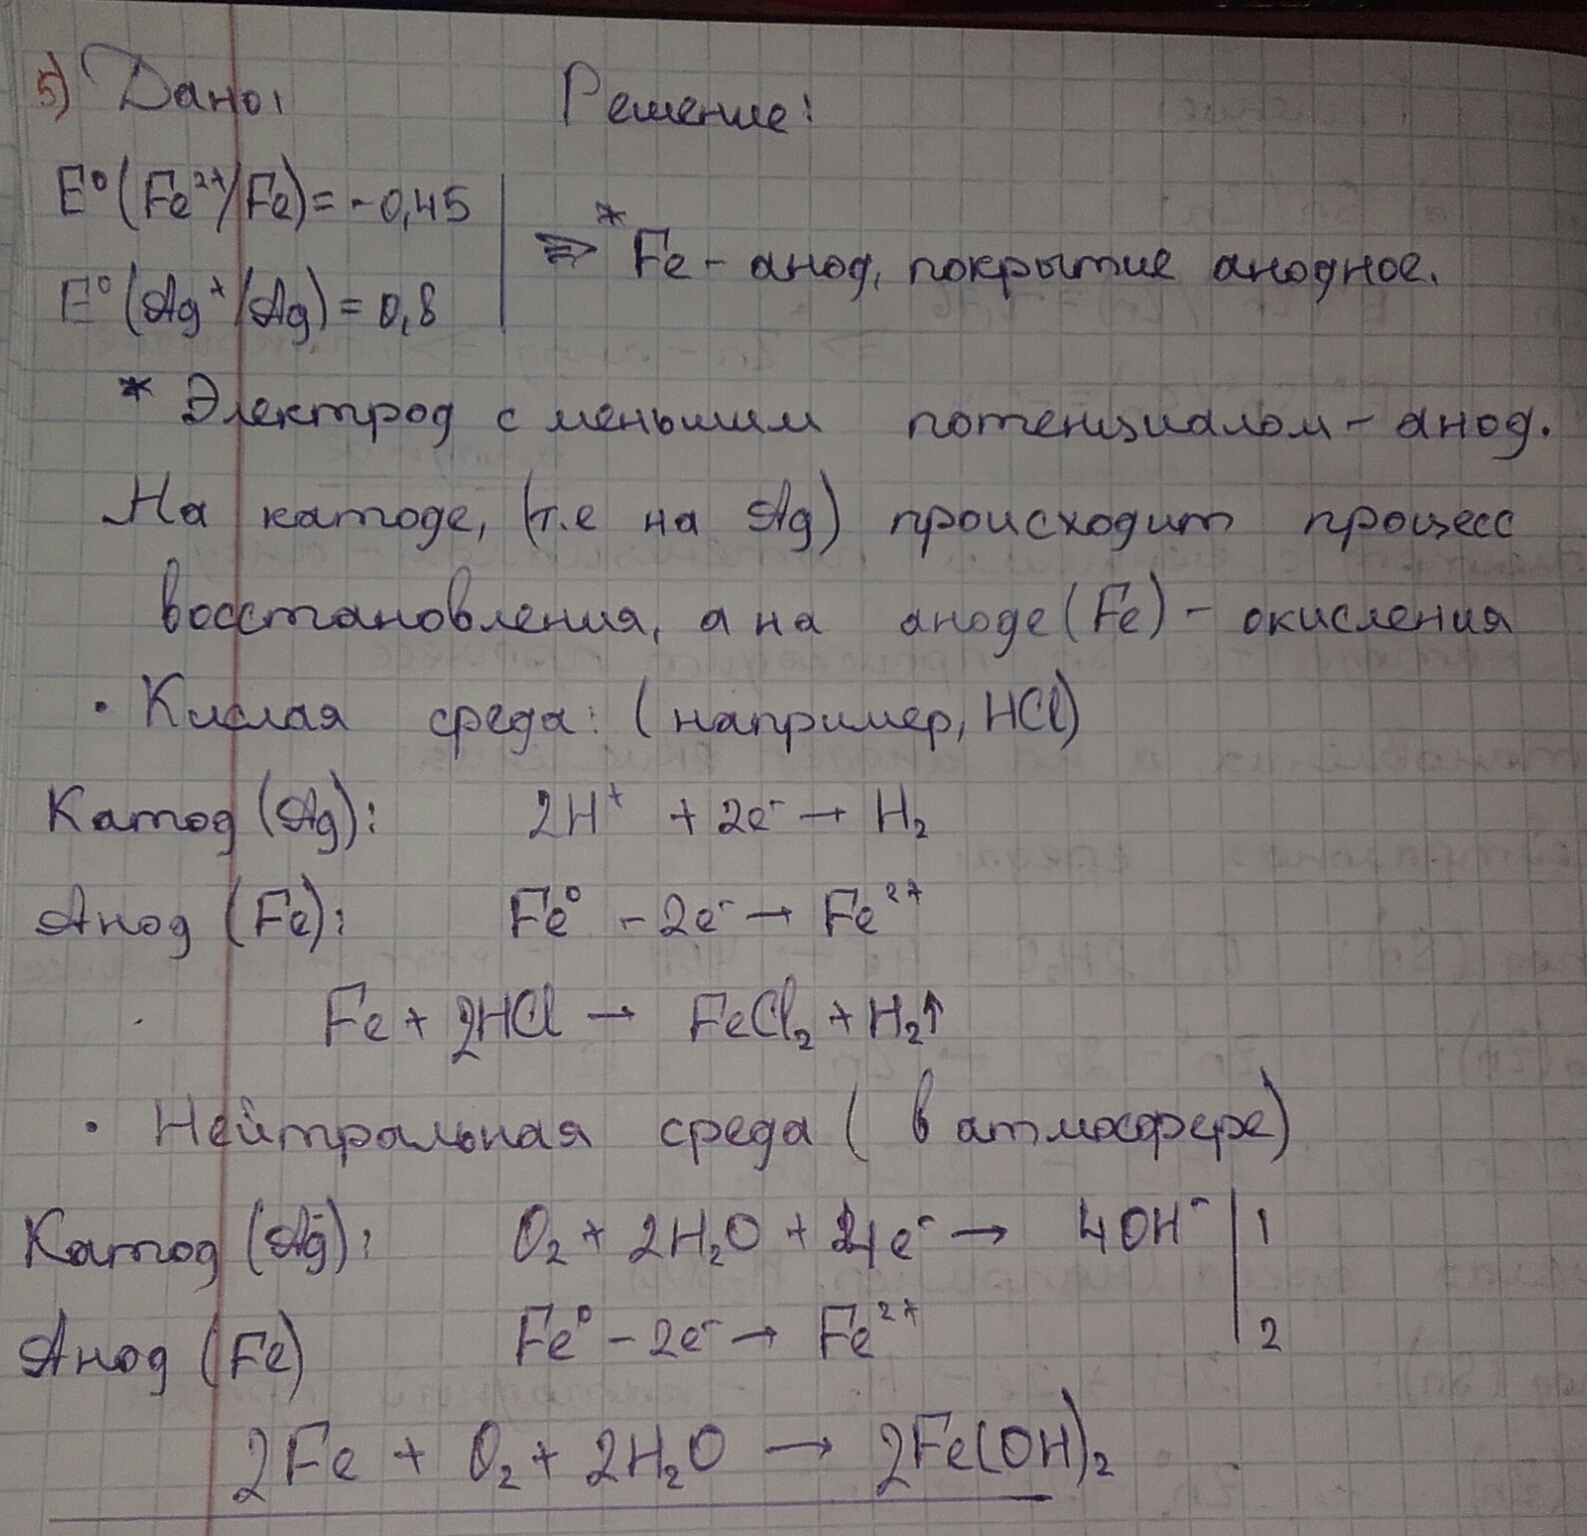 5) Дано: Решение:
E⁰(Fe²⁺/Fe) = -0,45
⇒ * Fe - анод, покрытие анодное.
E⁰(Ag⁺/Ag) = 0,8
* Электрод с меньшим потенциалом - анод.
На катоде, (т.е на Ag) происходит процесс
восстановления, а на аноде (Fe) - окисления
• Кислая среда: (например, HCl)
Катод (Ag): 2H⁺ + 2e⁻ → H₂
Анод (Fe): Fe⁰ - 2e⁻ → Fe²⁺
Fe + 2HCl → FeCl₂ + H₂↑
• Нейтральная среда (в атмосфере)
Катод (Ag): O₂ + 2H₂O + 4e⁻ → 4OH⁻ | 1
Анод (Fe) Fe⁰ - 2e⁻ → Fe²⁺ | 2
2Fe + O₂ + 2H₂O → 2Fe(OH)₂